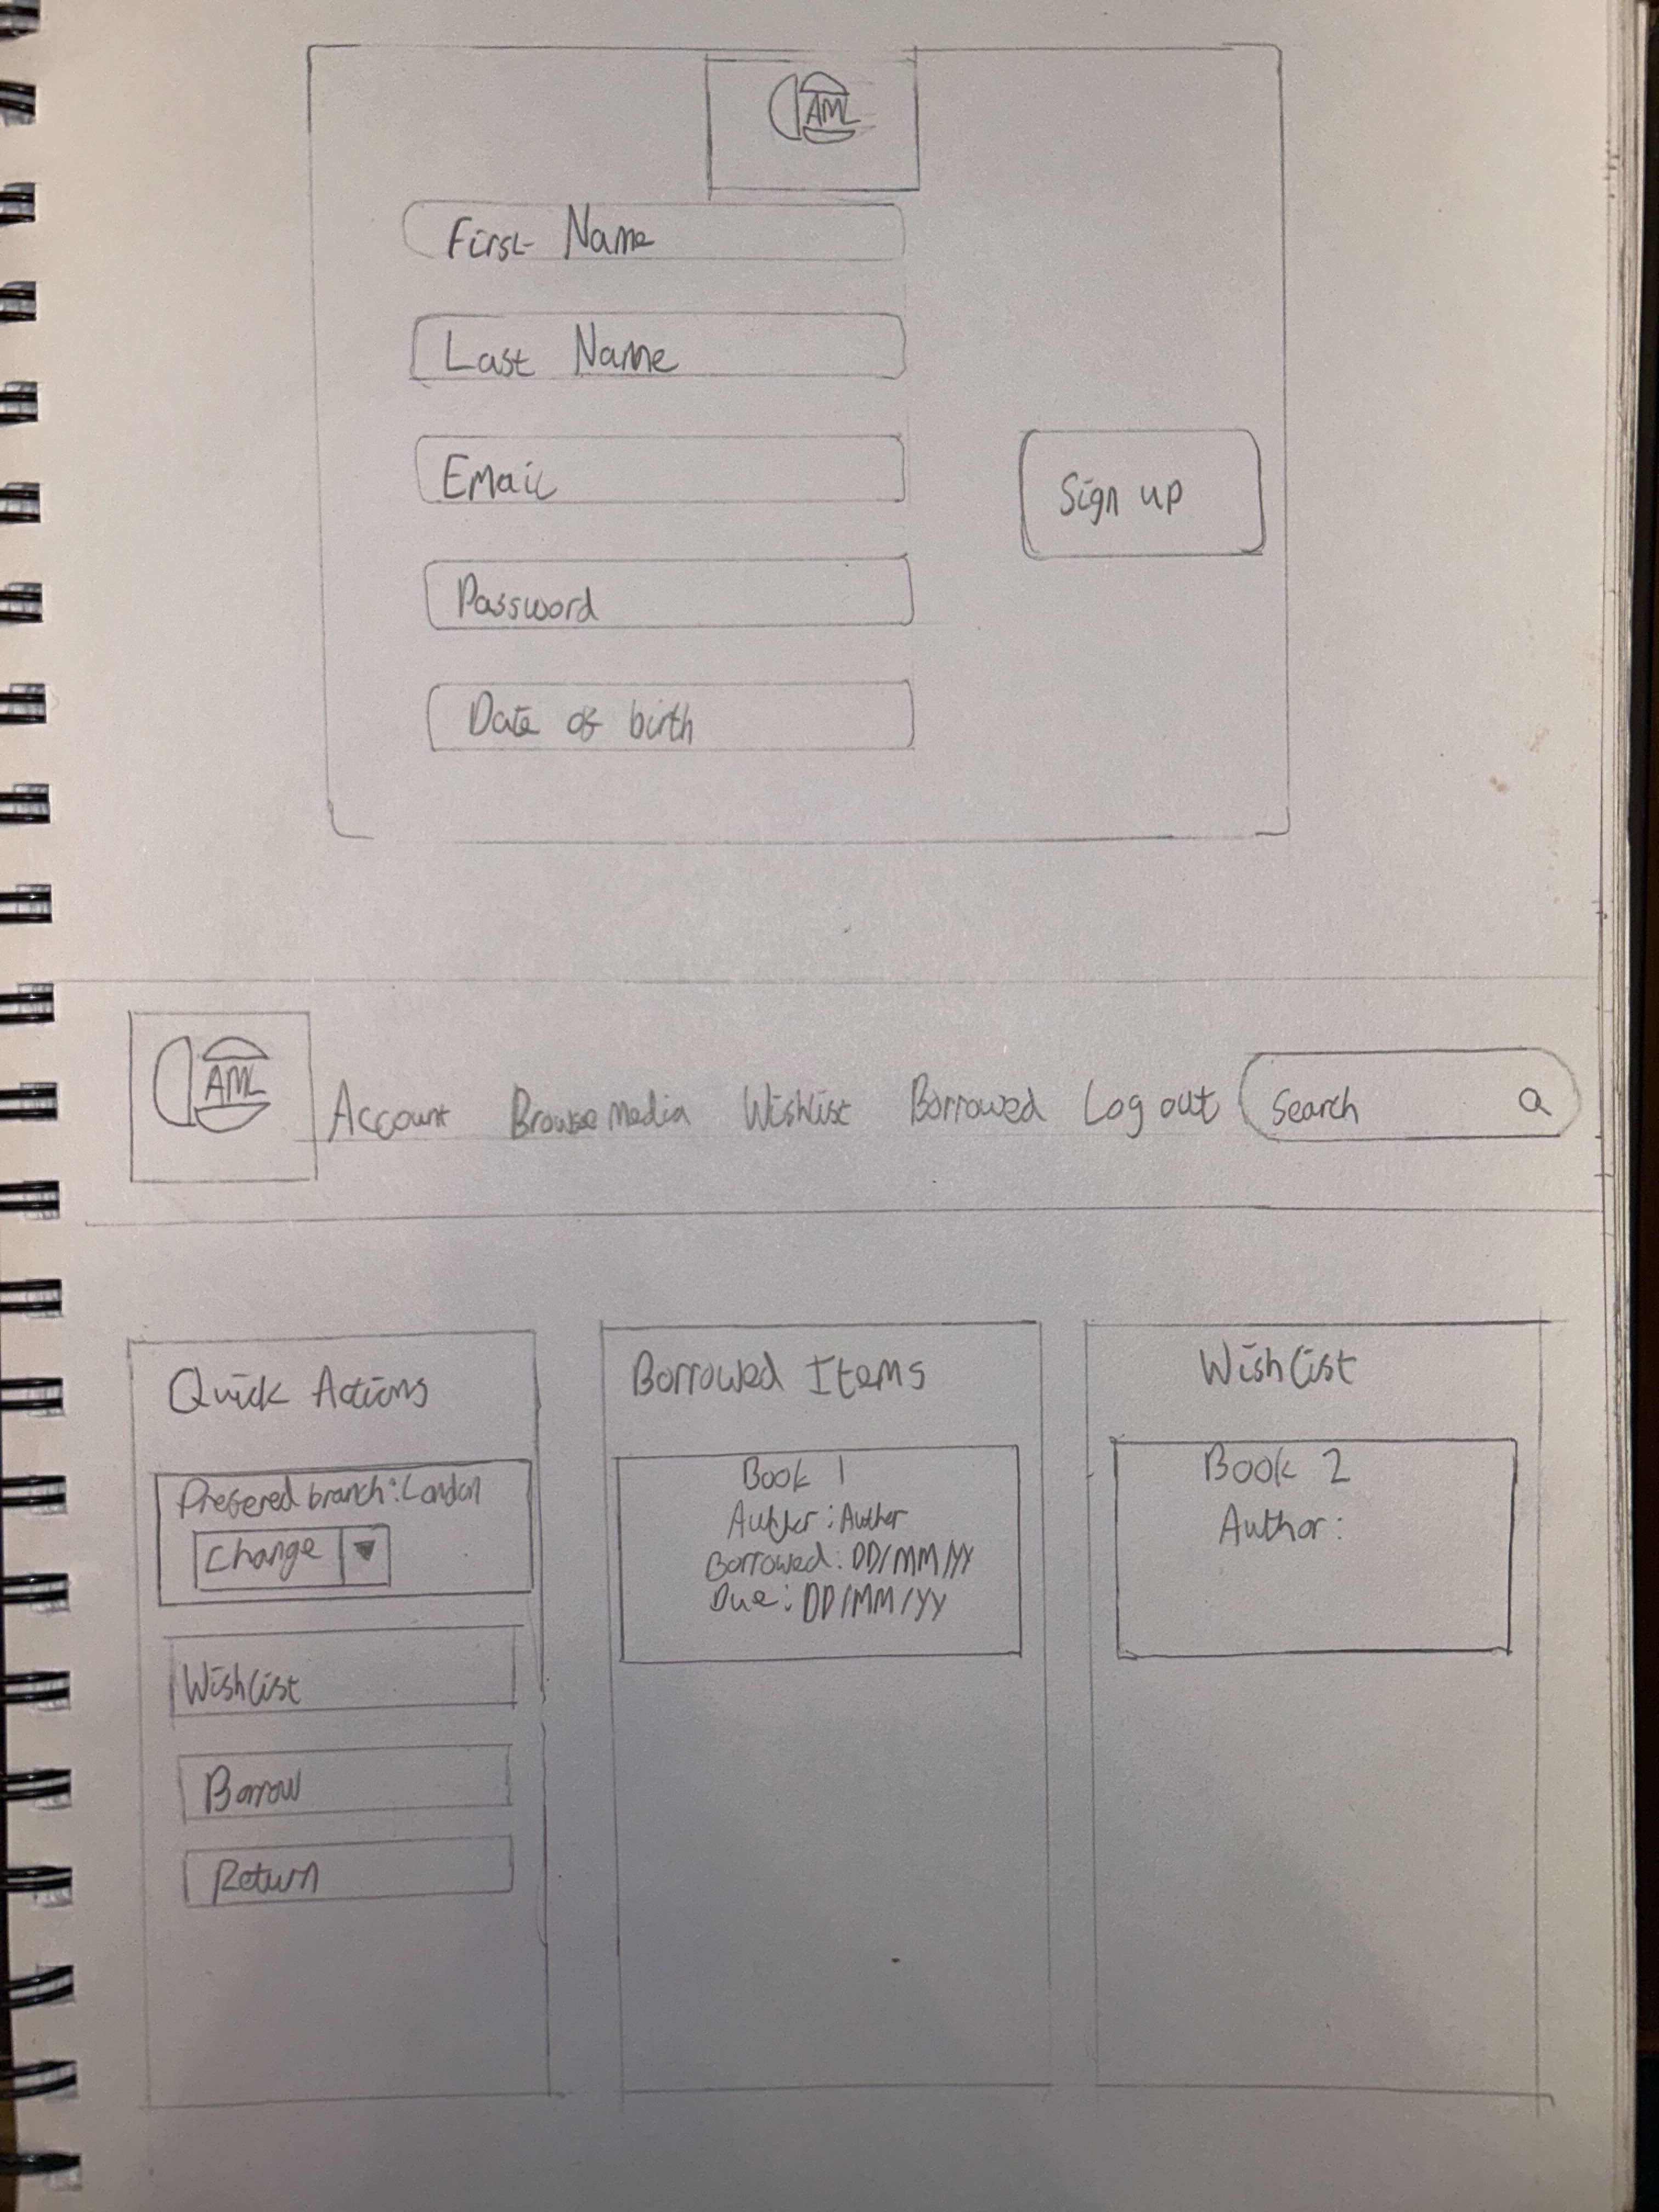 AML
First Name
Last Name
Email
Sign up
Password
Date of birth
AML
Account Browse media Wishlist Borrowed Log out Search
Quick Actions
Prefered branch: London
Change
Wishlist
Borrow
Return
Borrowed Items
Book 1
Author: Author
Borrowed: DD/MM/YY
Due: DD/MM/YY
Wishlist
Book 2
Author: